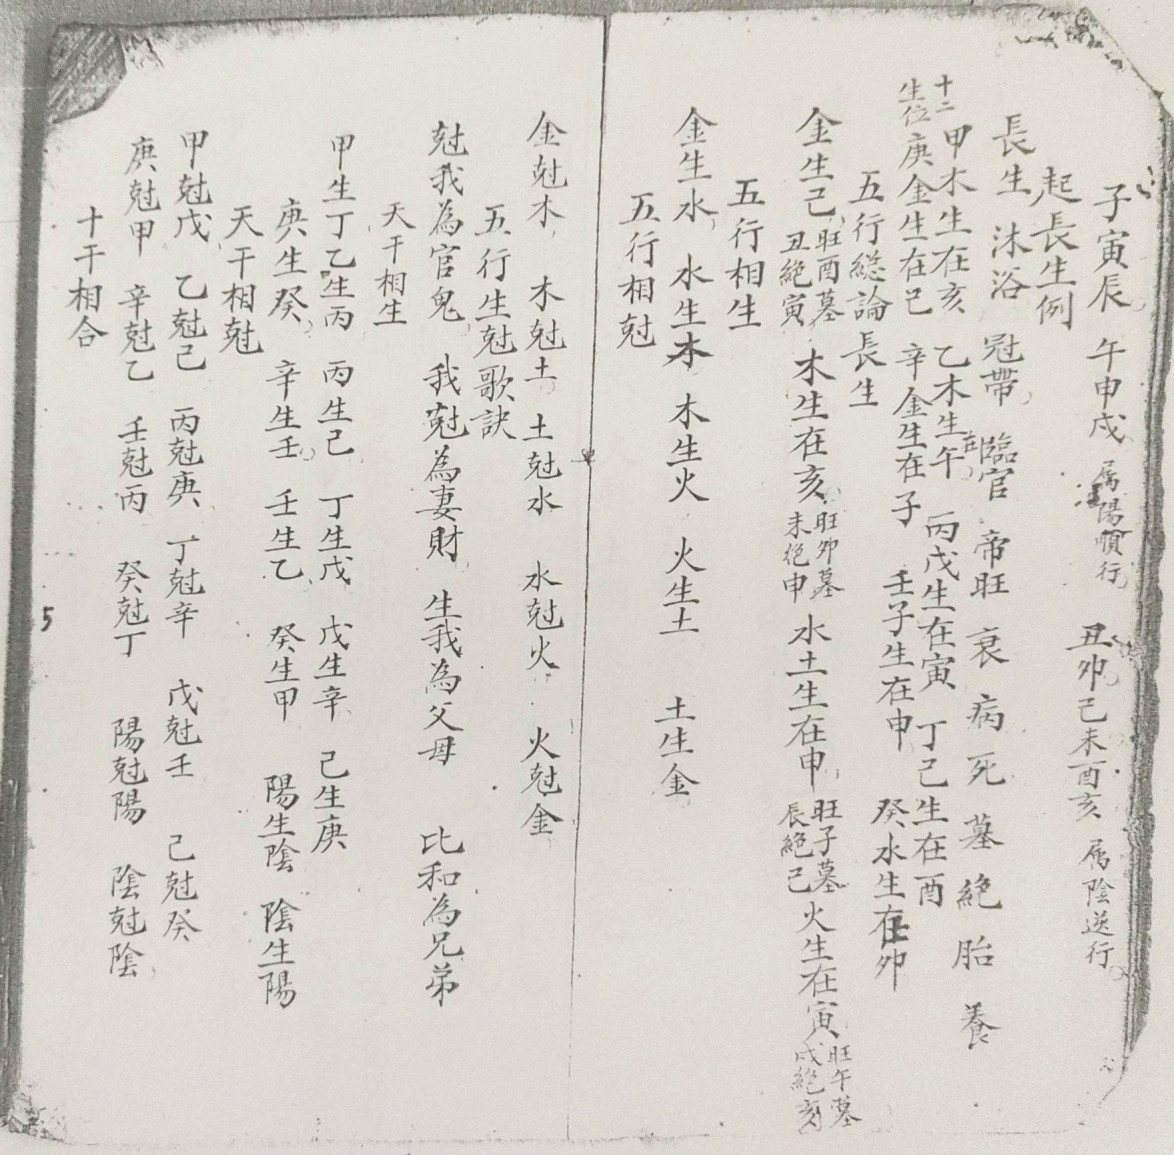 子寅辰 午申戌 属陽順行 丑卯己未酉亥 属陰逆行
起長生例
長生 沐浴 冠帶 臨官 帝旺 衰 病 死 墓 絕 胎 養
十二生位
甲木生在亥 乙木生在午 丙戊生在寅 丁己生在酉
庚金生在己 辛金生在子 壬子生在申 癸水生在卯
五行総論長生
金生己 旺酉墓丑絕寅 木生在亥 旺卯墓未絕申 水土生在申 旺子墓辰絕己 火生在寅 旺午墓戌絕亥
五行相生
金生水 水生木 木生火 火生土 土生金
五行相尅
金尅木 木尅土 土尅水 水尅火 火尅金
五行生尅歌訣
尅我為官鬼 我尅為妻財 生我為父母 比和為兄弟
天干相生
甲生丁 乙生丙 丙生己 丁生戊 戊生辛 己生庚
庚生癸 辛生壬 壬生乙 癸生甲 陽生陰 陰生陽
天干相尅
甲尅戊 乙尅己 丙尅庚 丁尅辛 戊尅壬 己尅癸
庚尅甲 辛尅乙 壬尅丙 癸尅丁 陽尅陽 陰尅陰
十干相合
5